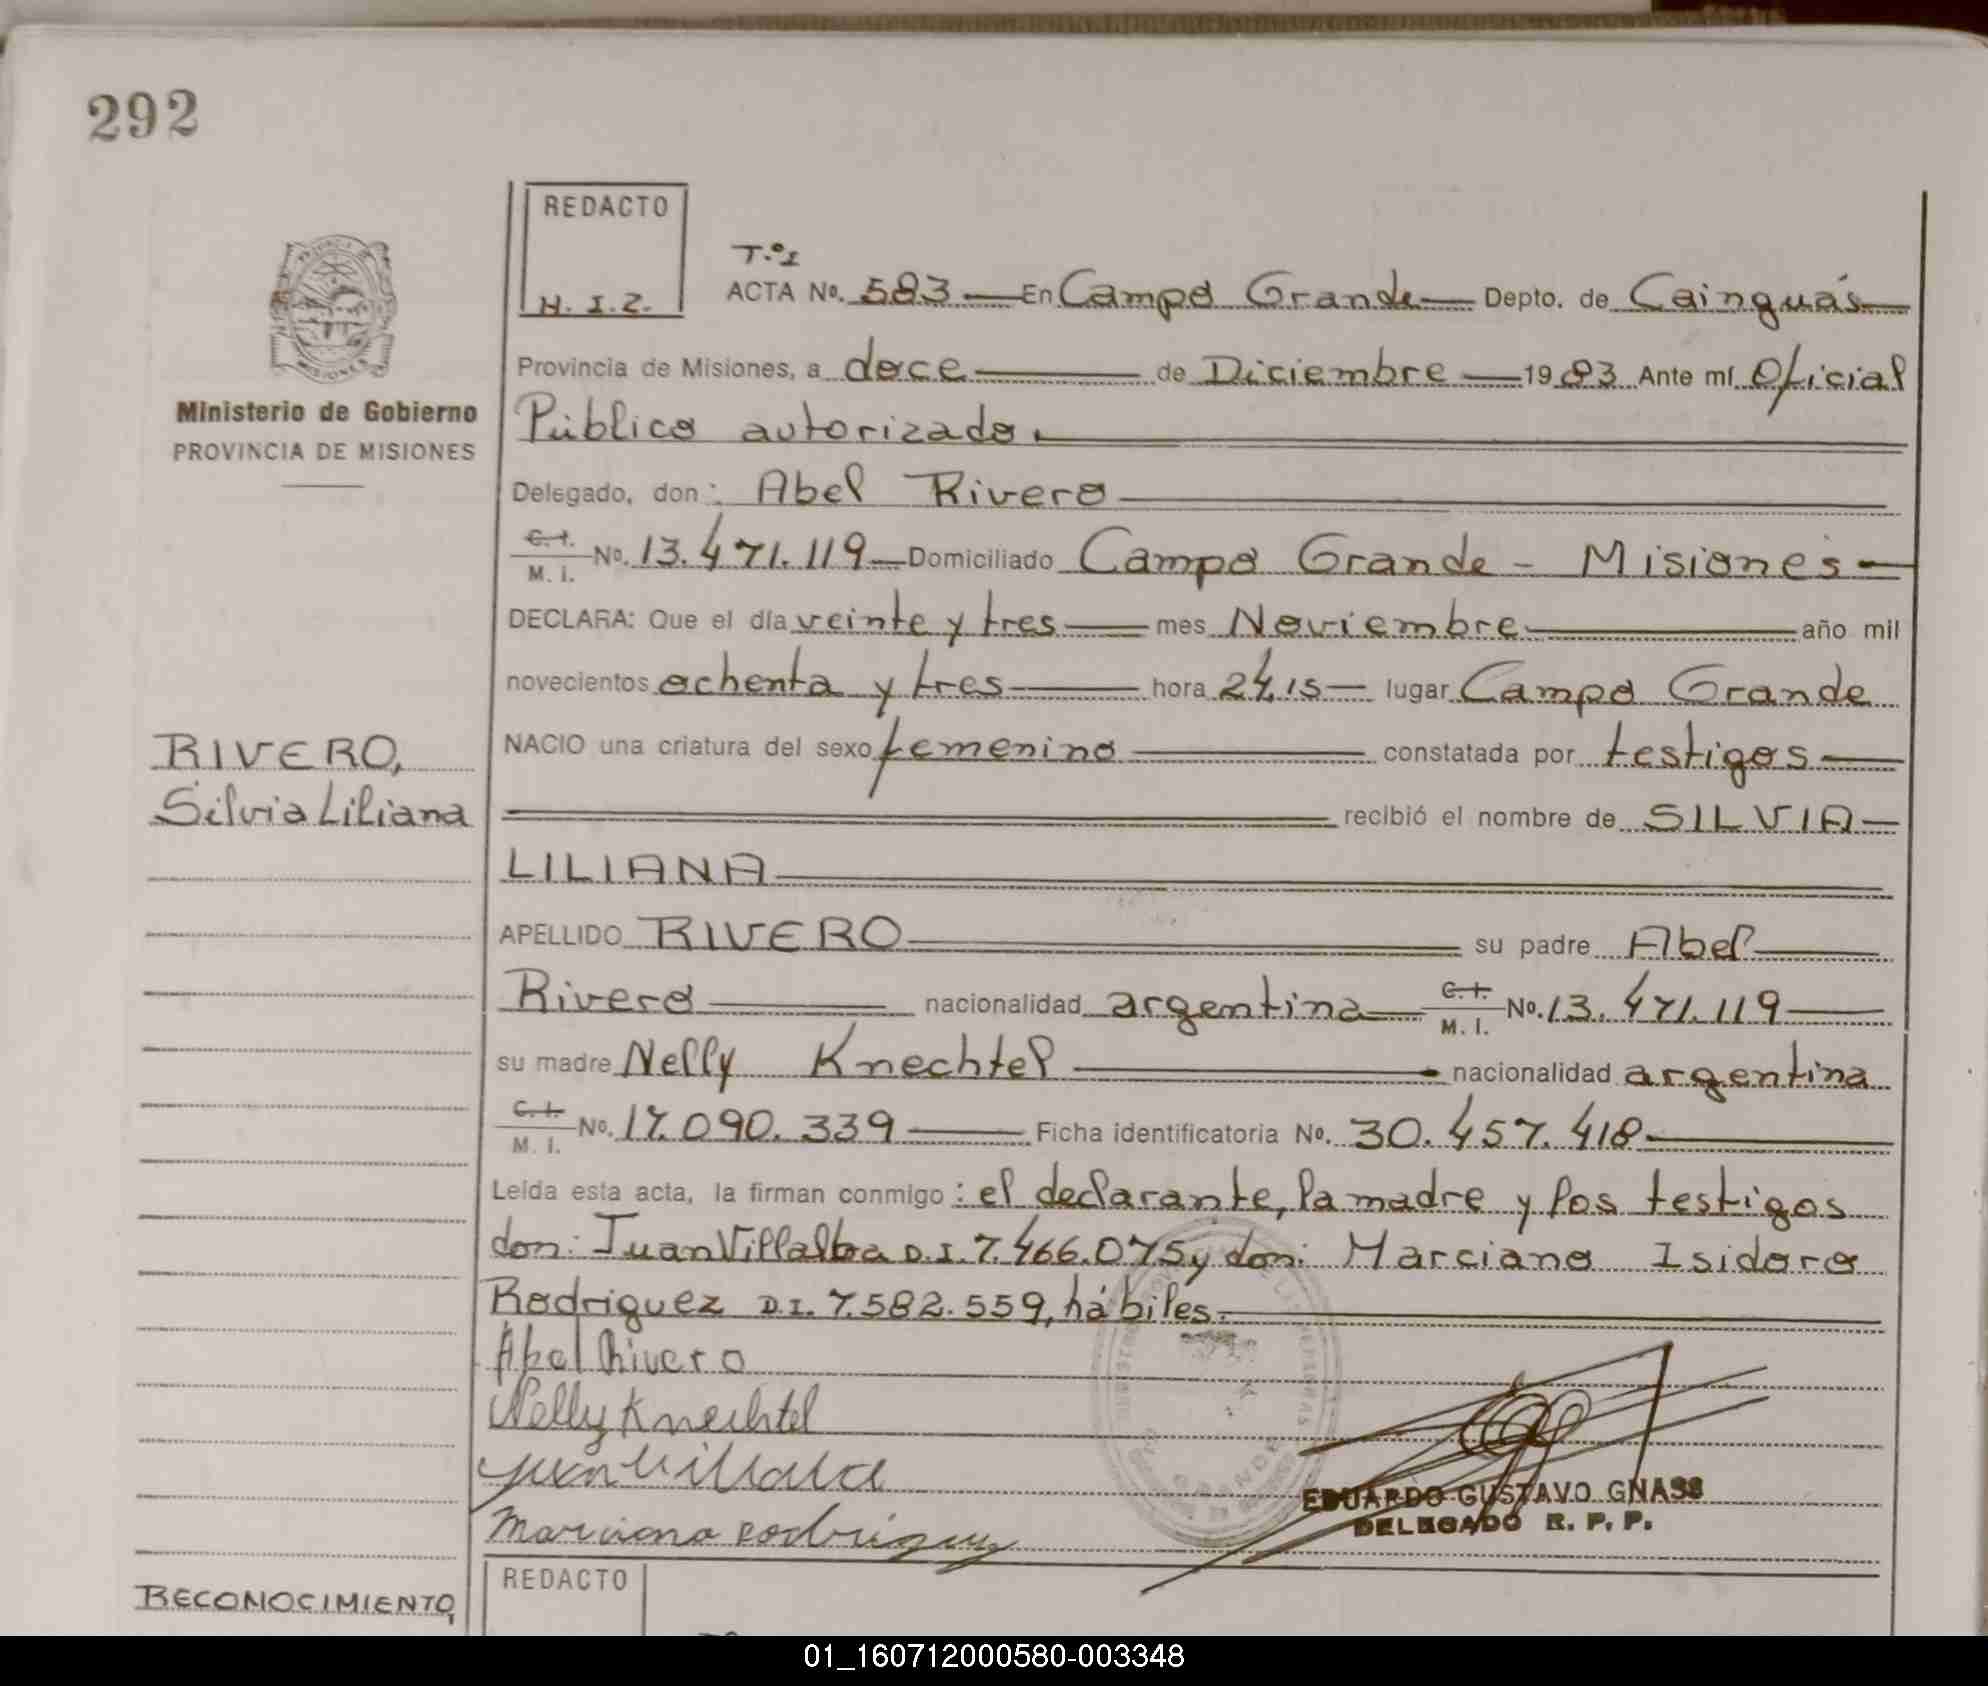 292
REDACTO
H. I. Z.
T.º 1
ACTA Nº. 583 En Campo Grande Depto. de Cainguás
Provincia de Misiones, a doce de Diciembre 1983 Ante mí Oficial
Público autorizado.
Ministerio de Gobierno
PROVINCIA DE MISIONES
Delegado, don: Abel Rivero
C. I.
M. I. Nº. 13.471.119 Domiciliado Campo Grande - Misiones
DECLARA: Que el día veinte y tres mes Noviembre año mil
novecientos ochenta y tres hora 24,15 lugar Campo Grande
NACIO una criatura del sexo femenino constatada por testigos
RIVERO,
Silvia Liliana
recibió el nombre de SILVIA
LILIANA
APELLIDO RIVERO su padre Abel
Rivero nacionalidad argentina C. I. M. I. Nº. 13.471.119
su madre Nelly Knechtel nacionalidad argentina
C. I.
M. I. Nº. 17.090.339 Ficha identificatoria Nº. 30.457.418
Leída esta acta, la firman conmigo: el declarante, la madre y los testigos
don: Juan Villalba D.I. 7.466.075 y don: Marciano Isidoro
Rodriguez D.I. 7.582.559, hábiles.
Abel Rivero
Nelly Knechtel
Juan Villalba
Marciano Rodriguez
EDUARDO GUSTAVO GNASS
DELEGADO R. P. P.
REDACTO
RECONOCIMIENTO,
01_160712000580-003348